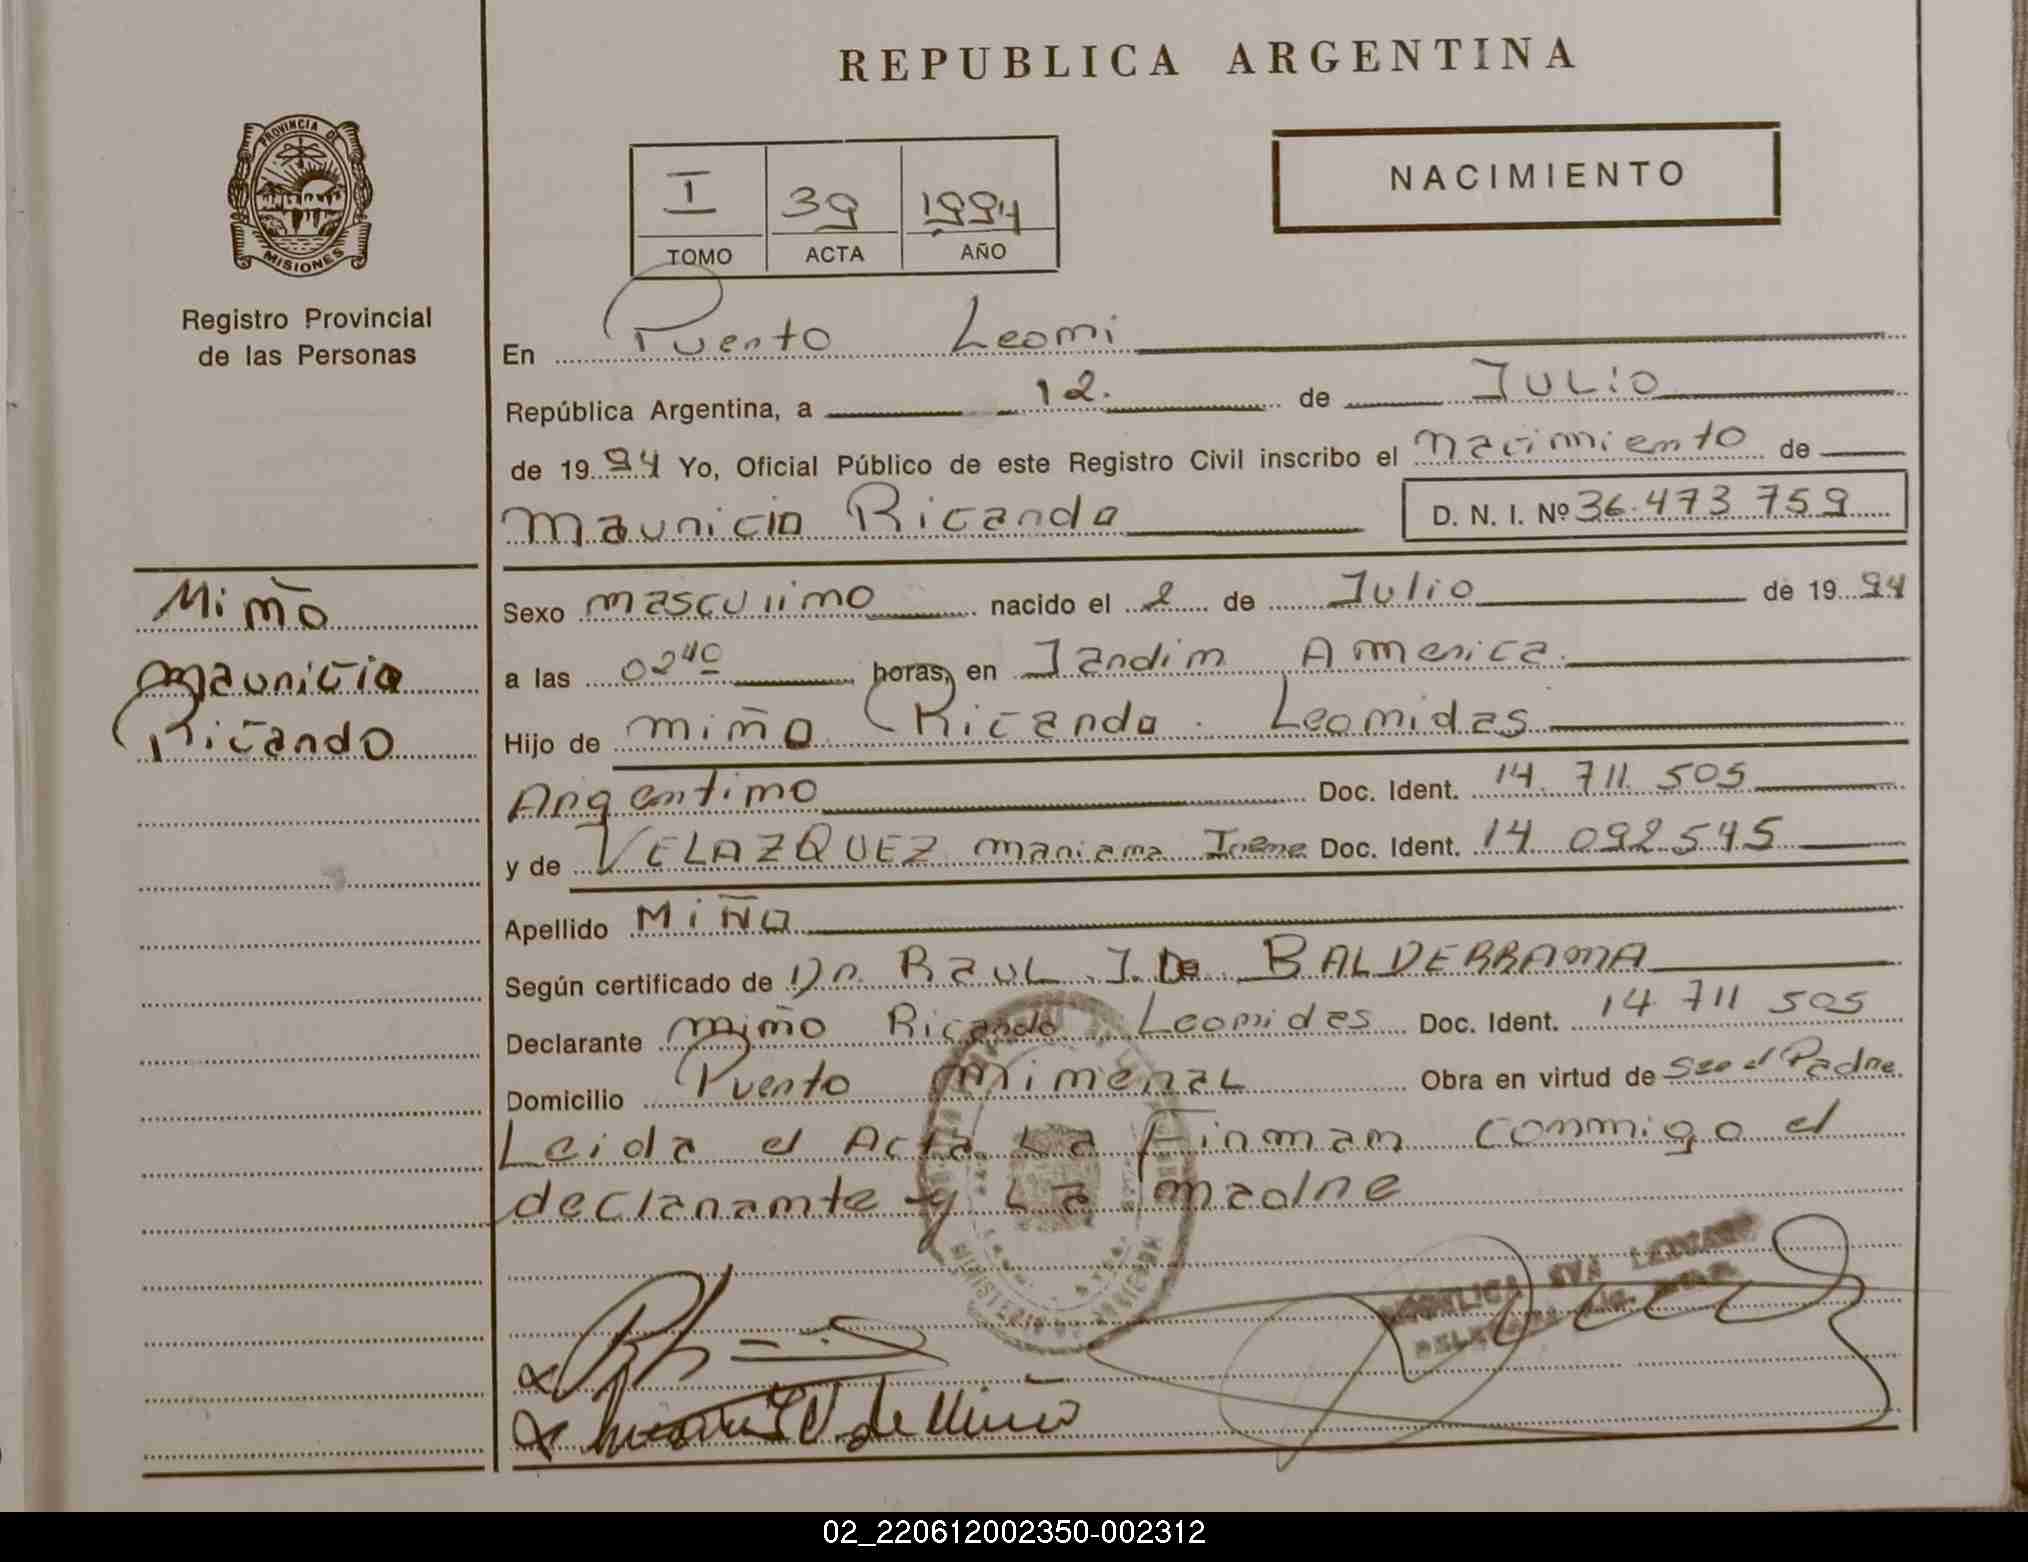 REPUBLICA ARGENTINA
PROVINCIA DE
MISIONES
Registro Provincial
de las Personas
NACIMIENTO
I 39 1994
TOMO ACTA AÑO
En Puerto Leoni
República Argentina, a 12. de JULiO
de 1994 Yo, Oficial Público de este Registro Civil inscribo el nacimiento de
Mauricio Ricardo D. N. I. Nº 36.473 759
Miño
Mauricio
Ricardo
Sexo masculino nacido el 2 de Julio de 1994
a las 02 40 horas, en Jardim America
Hijo de miño Ricardo Leonidas
Argentino Doc. Ident. 14. 711. 505
y de VELAZQUEZ mariana Irene Doc. Ident. 14 092.545
Apellido MiÑo
Según certificado de Dr. RauL J. De BALDERRAMA
Declarante miño Ricardo Leonidas Doc. Ident. 14 711 505
Domicilio Puerto mineraL Obra en virtud de ser el Padre
Leida el Acta La Firman conmigo el
declarante y La madre
MINISTERIO DE GOBIERNO
EVA
de Miño
02_220612002350-002312